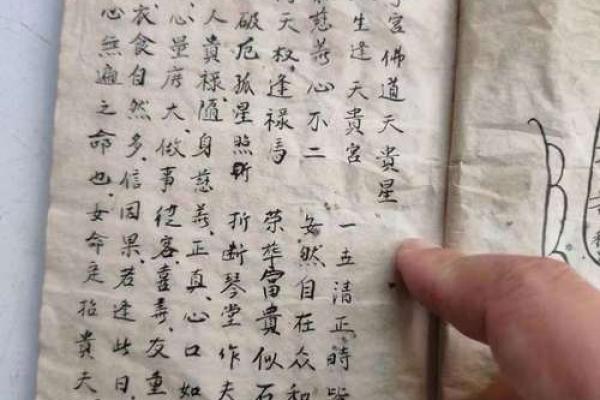 宮佛道天貴星
生逢天貴宮 一清正時皆
慈善心不二 安然自在众和
天权逢禄馬 荣華富貴似石
破厄孤星照 折断琴堂作夫
人貴禄、隨身慈善、正真、心口如
心量廣大、做事從客喜、友重
衣食自然多、信因果、若逢此日
心無遍之命也、女命定招貴天